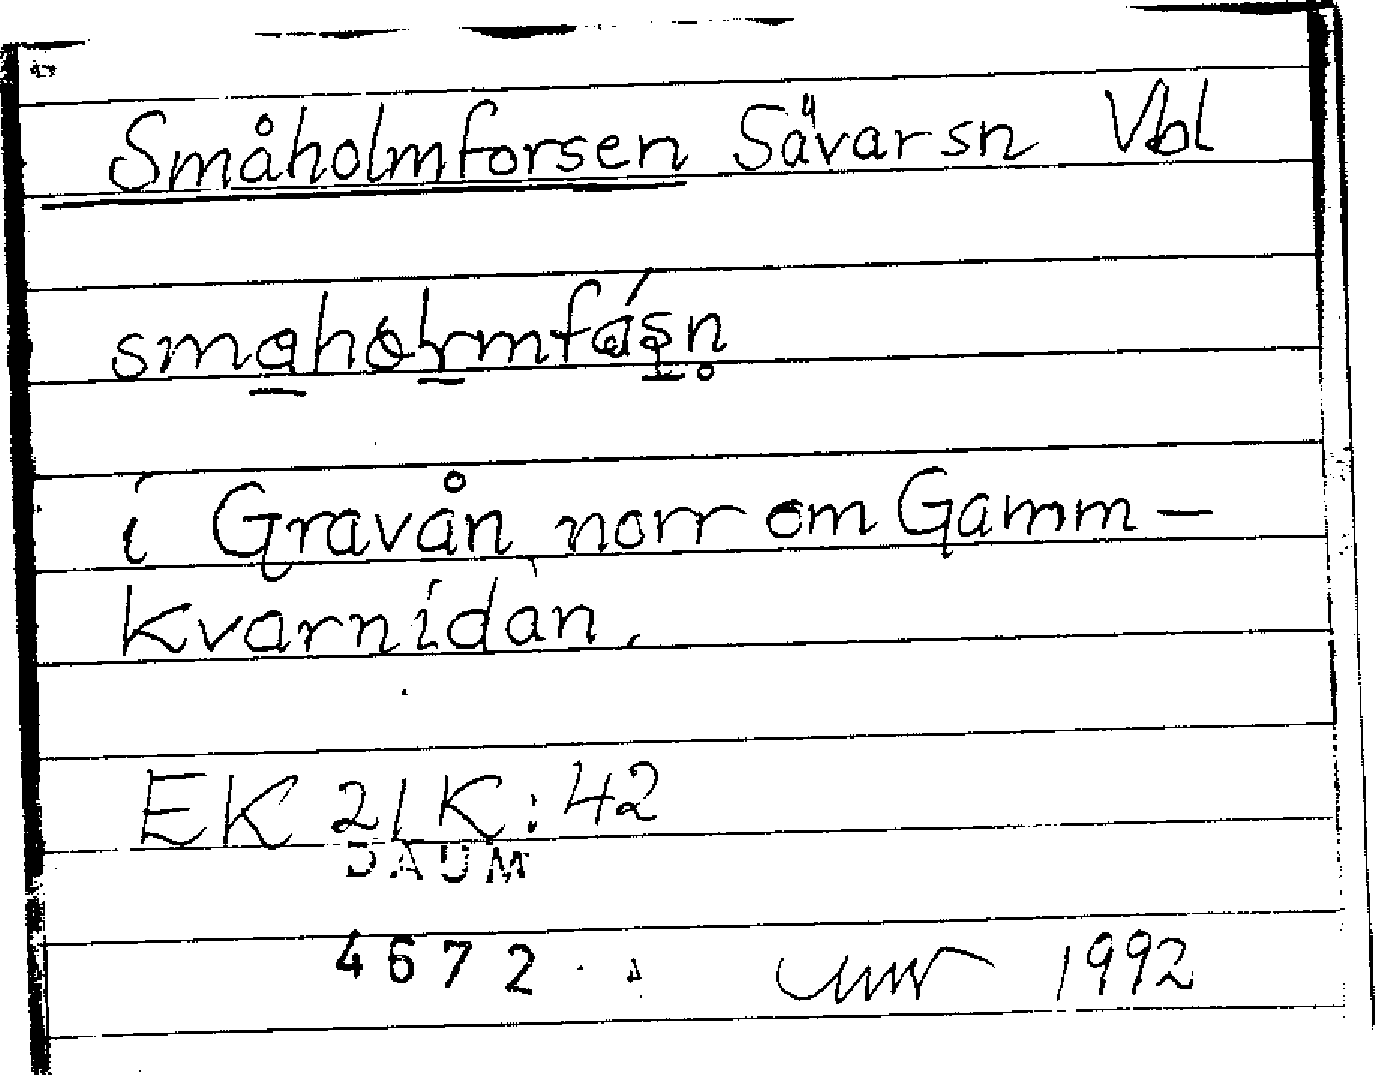 Småholmforsen Sävar sn Vbl
i Gravån norr om Gamm-
kvarnidan.
EK 21K:42
DAUM
4672
1992